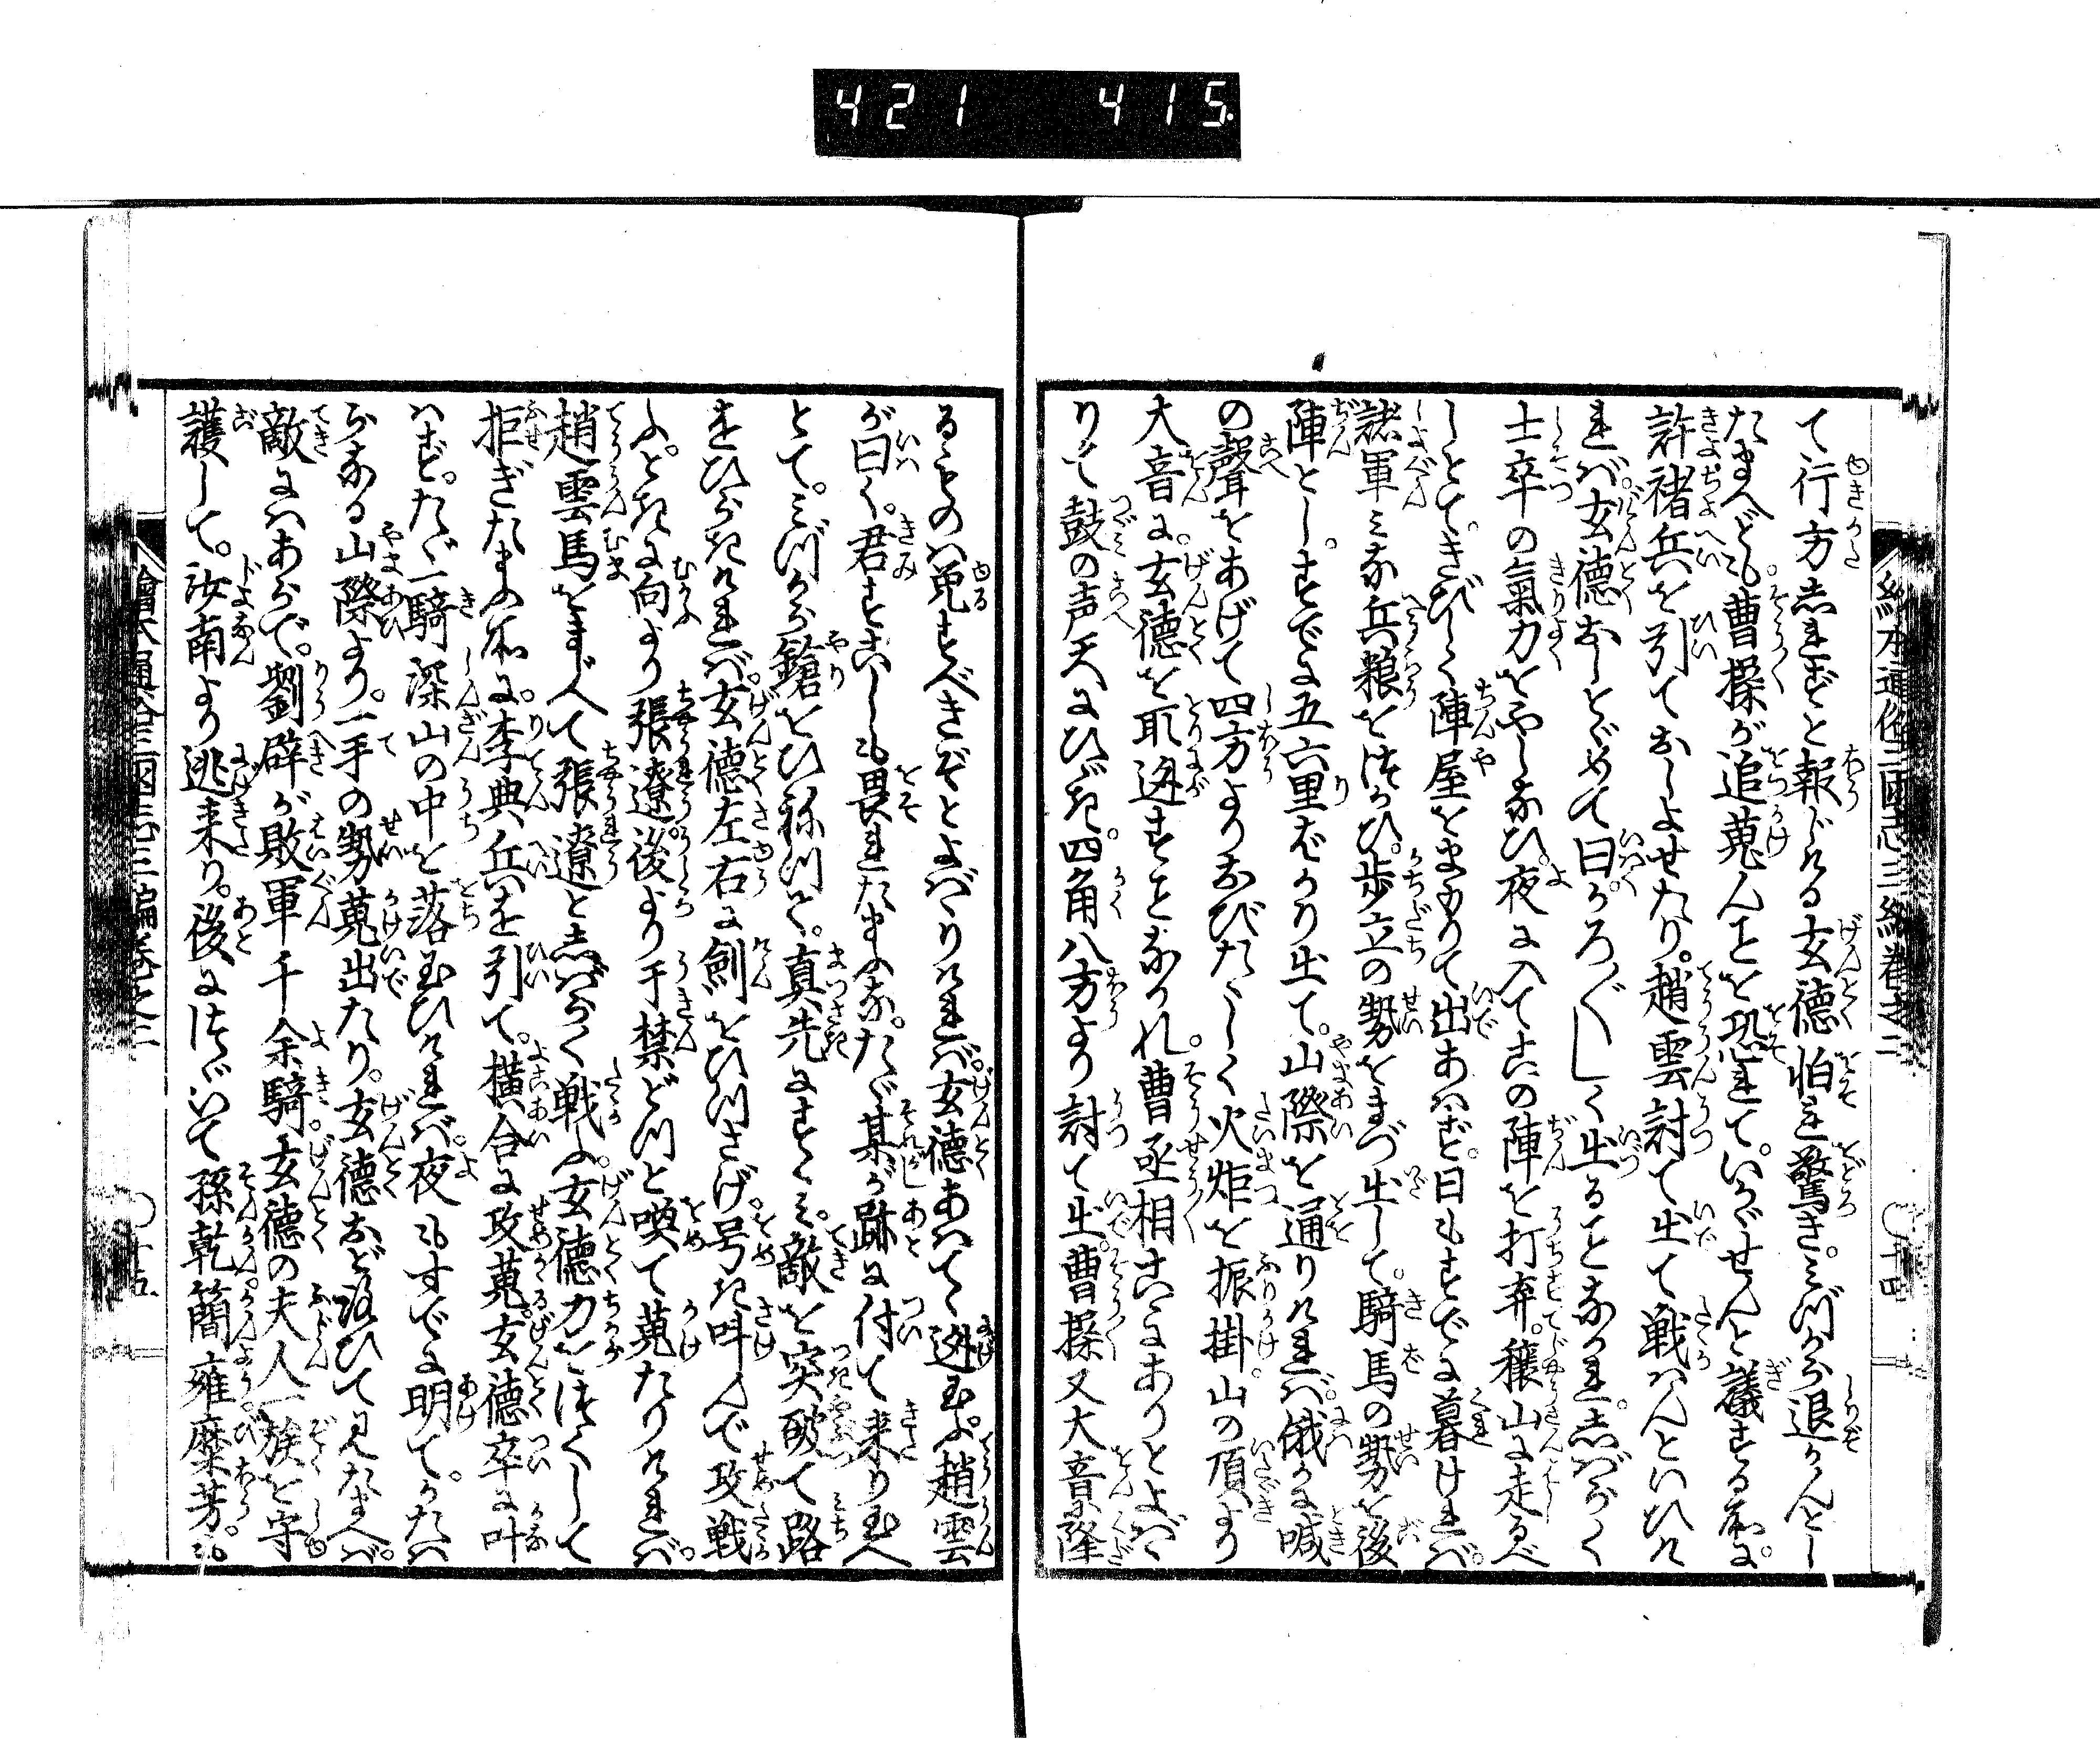 421 415
て行方しれずと報じける玄徳怕れ驚き。みづから退かんとし
たまへども。曹操が追蒐んことを恐れて。いかゞせんと議する所に。
許褚兵を引ておしよせたり。趙雲討て出て戦はんといひけ
れば。玄徳おしとゞめて曰かろ〴〵しく出ることなかれ。しばらく
士卒の氣力をやしなひ。夜に入てこの陣を打弃。穰山に走るべ
しとて。きびしく陣屋をまもりて出あはず。日もすでに暮ければ。
諸軍みな兵粮をつかひ。歩立の勢をまづ出して。騎馬の勢を後
陣とし。すでに五六里ばかり出て。山際を通りければ。俄に喊
の聲をあげて四方よりおびたゝしく火炬を振掛。山の頂より
大音に。玄徳を取迯すことなかれ。曹丞相こゝにありとよばゝ
りて鼓の声天にひゞき。四角八方より討て出。曹操又大音に降
るものは免すべきぞとよばゝりければ。玄徳あはてゝ迯玉ふ。趙雲
が曰く。君すこしも畏れたまふな。たゞ某が跡に付て来り玉へ
とて。みづから鎗をひねつて。真先にすゝみ。敵を突破て路
をひらきければ。玄徳左右に劍をひつさげ。号き叫んで攻戦
ふ。ときに向より張遼。後より于禁どつと喚て蒐たりければ。
趙雲馬をまじへて張遼としばらく戦ふ。玄徳力をつくして
拒ぎたまふ所に。李典兵を引て。横合に攻蒐。玄徳卒に叶
はず。たゞ一騎深山の中を落玉ひければ。夜もすでに明て。かたは
らなる山際より。一手の勢蒐出たり。玄徳おどろひて見たまへば。
敵にはあらで。劉辟が敗軍千余騎。玄徳の夫人一族を守
護して。汝南より逃来り。後につゞいて孫乾簡雍糜芳。も
繪本通俗三國志三編巻之二